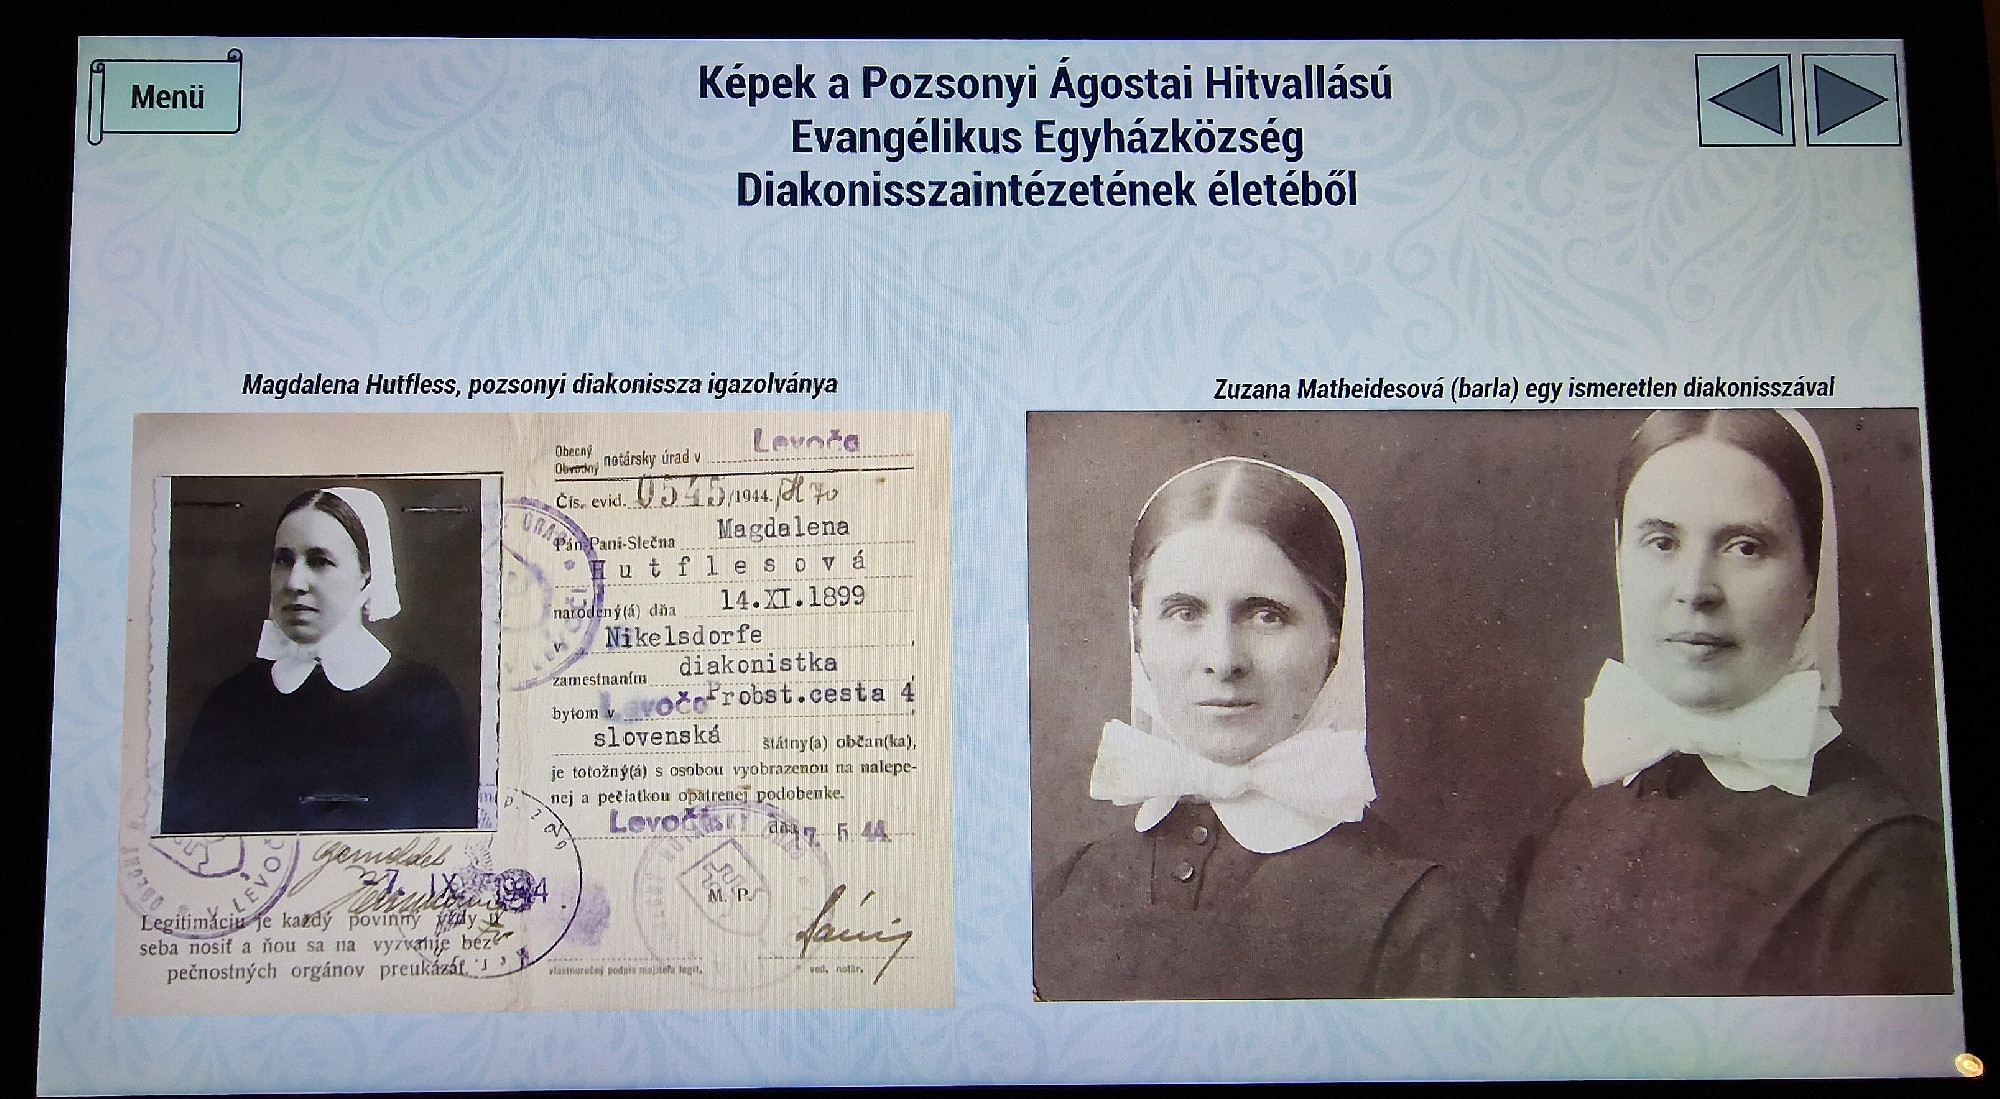 Menü
Képek a Pozsonyi Ágostai Hitvallású
Evangélikus Egyházközség
Diakonisszaintézetének életéből
Magdalena Hutfless, pozsonyi diakonissza igazolványa
Zuzana Matheidesová (barla) egy ismeretlen diakonisszával
Obecný
Obvodný notársky úrad v Levoča
Čís. evid. 0545/1944./H 70
Pán-Pani-Slečna Magdalena
Hutflesová
narodený(á) dňa 14.XI.1899
v Nikelsdorfe,
zamestnaním diakonistka,
bytom v Levočo Probst.cesta 4,
slovenská štátny(a) občan(ka),
je totožný(á) s osobou vyobrazenou na nalepe-
nej a pečiatkou opatrenej podobenke.
dňa 5. 44
M. P.
vlastnoručný podpis majiteľa legit.
ved. notár.
7. IX. 1944
Legitimáciu je každý povinný vždy u
seba nosiť a ňou sa na vyzvanie bez-
pečnostných orgánov preukázať.